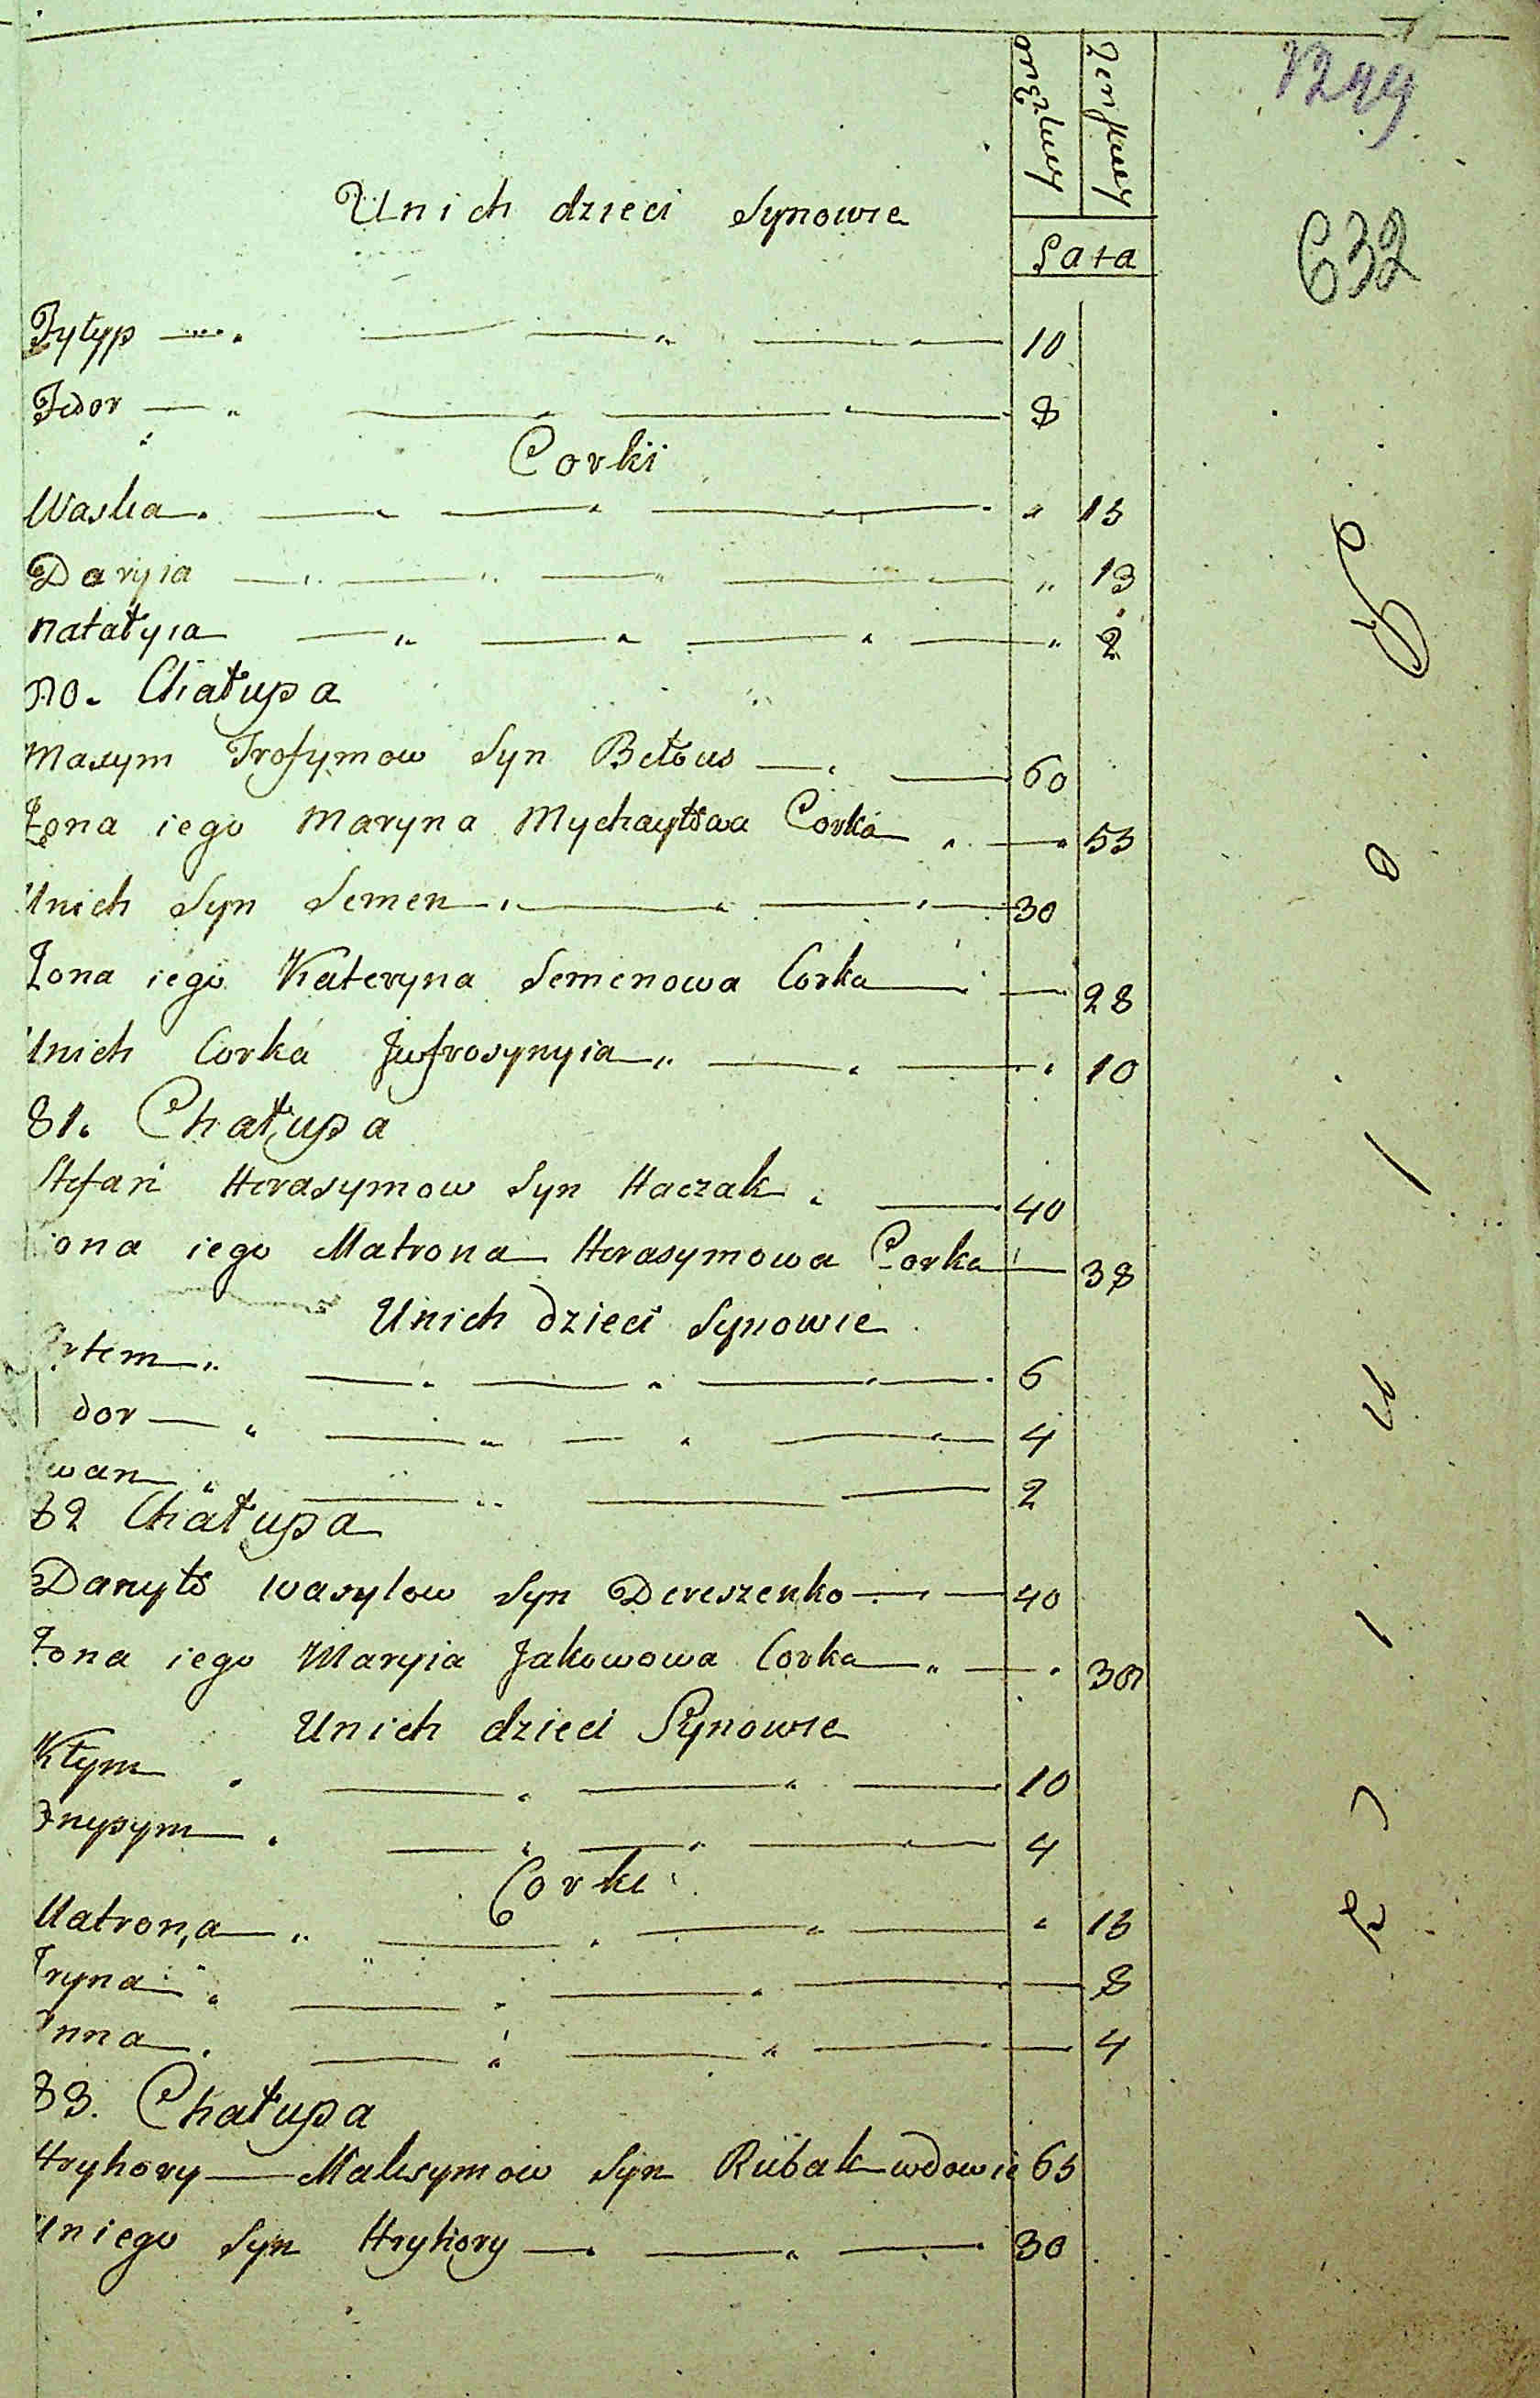 1299
632
męzkey
żenskiey
Unich dzieci Synowie
Łata
Fyłyp 10
Fedor 8
Corki
Waska 15
Daryia 13
Natałyia 2
Chałupa
Maxym Trofymow Syn Biełous 60
Żona iego Maryna Mychayłowa Corka 55
Unich Syn Semen 30
Żona iego Kateryna Semenowa Corka 28
Unich Corka Jwfrosynyia 10
81. Chałupa
Stefan Herasymow Syn Haczak 40
ona iego Matrona Herasymowa Corka 38
Unich dzieci Synowie
Artem 6
dor 4
Iwan 2
82 Chałupa
Danyło Wasylow Syn Dereszenko 40
Żona iego Maryia Jakowowa Corka
Unich dzieci Synowie
Kłym 10
Onysym 4
Corki
Matrona 15
Iryna 8
Anna 4
83. Chałupa
Hryhory Maksymow Syn Rubak wdowie 65
Uniego Syn Hryhory 30